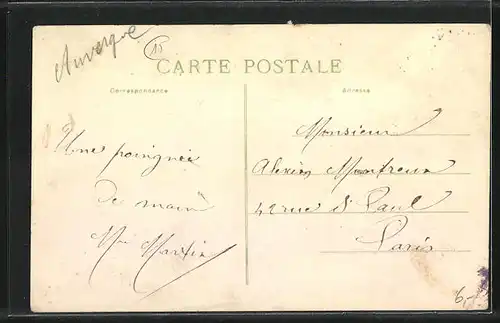 Auvergne
15
CARTE POSTALE
Correspondance
Adresse
Une poingnée
de main
Mme Martin
Monsieur
Alexis
42 rue St Paul
Paris
6,-